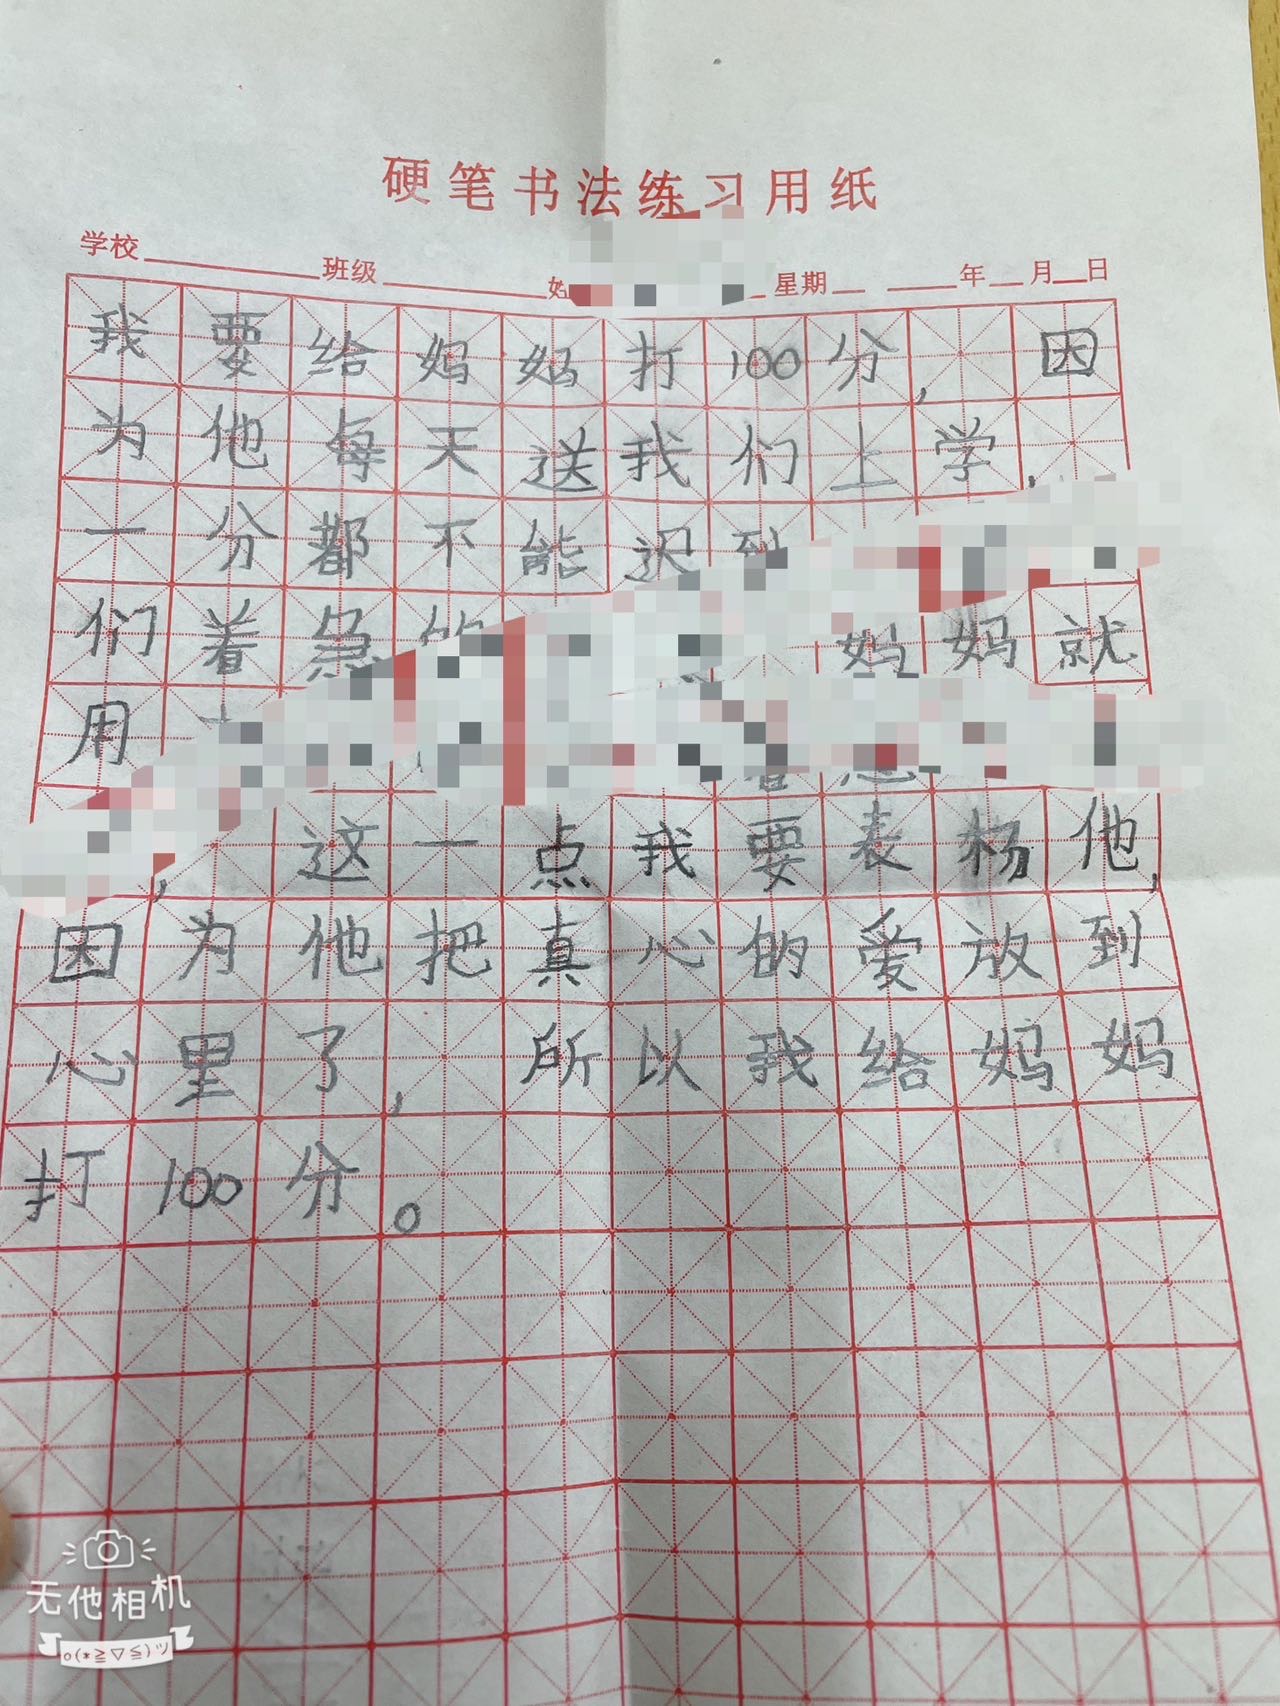 硬笔书法练习用纸
学校 班级 星期 年 月 日
我要给妈妈打100分,因
为他每天送我们上学,
一分都不能迟到
们着急的 妈妈就
用 着急
,这一点我要表杨他,
因为他把真心的爱放到
心里了,所以我给妈妈
打100分。
无他相机
o(*≧▽≦)ツ